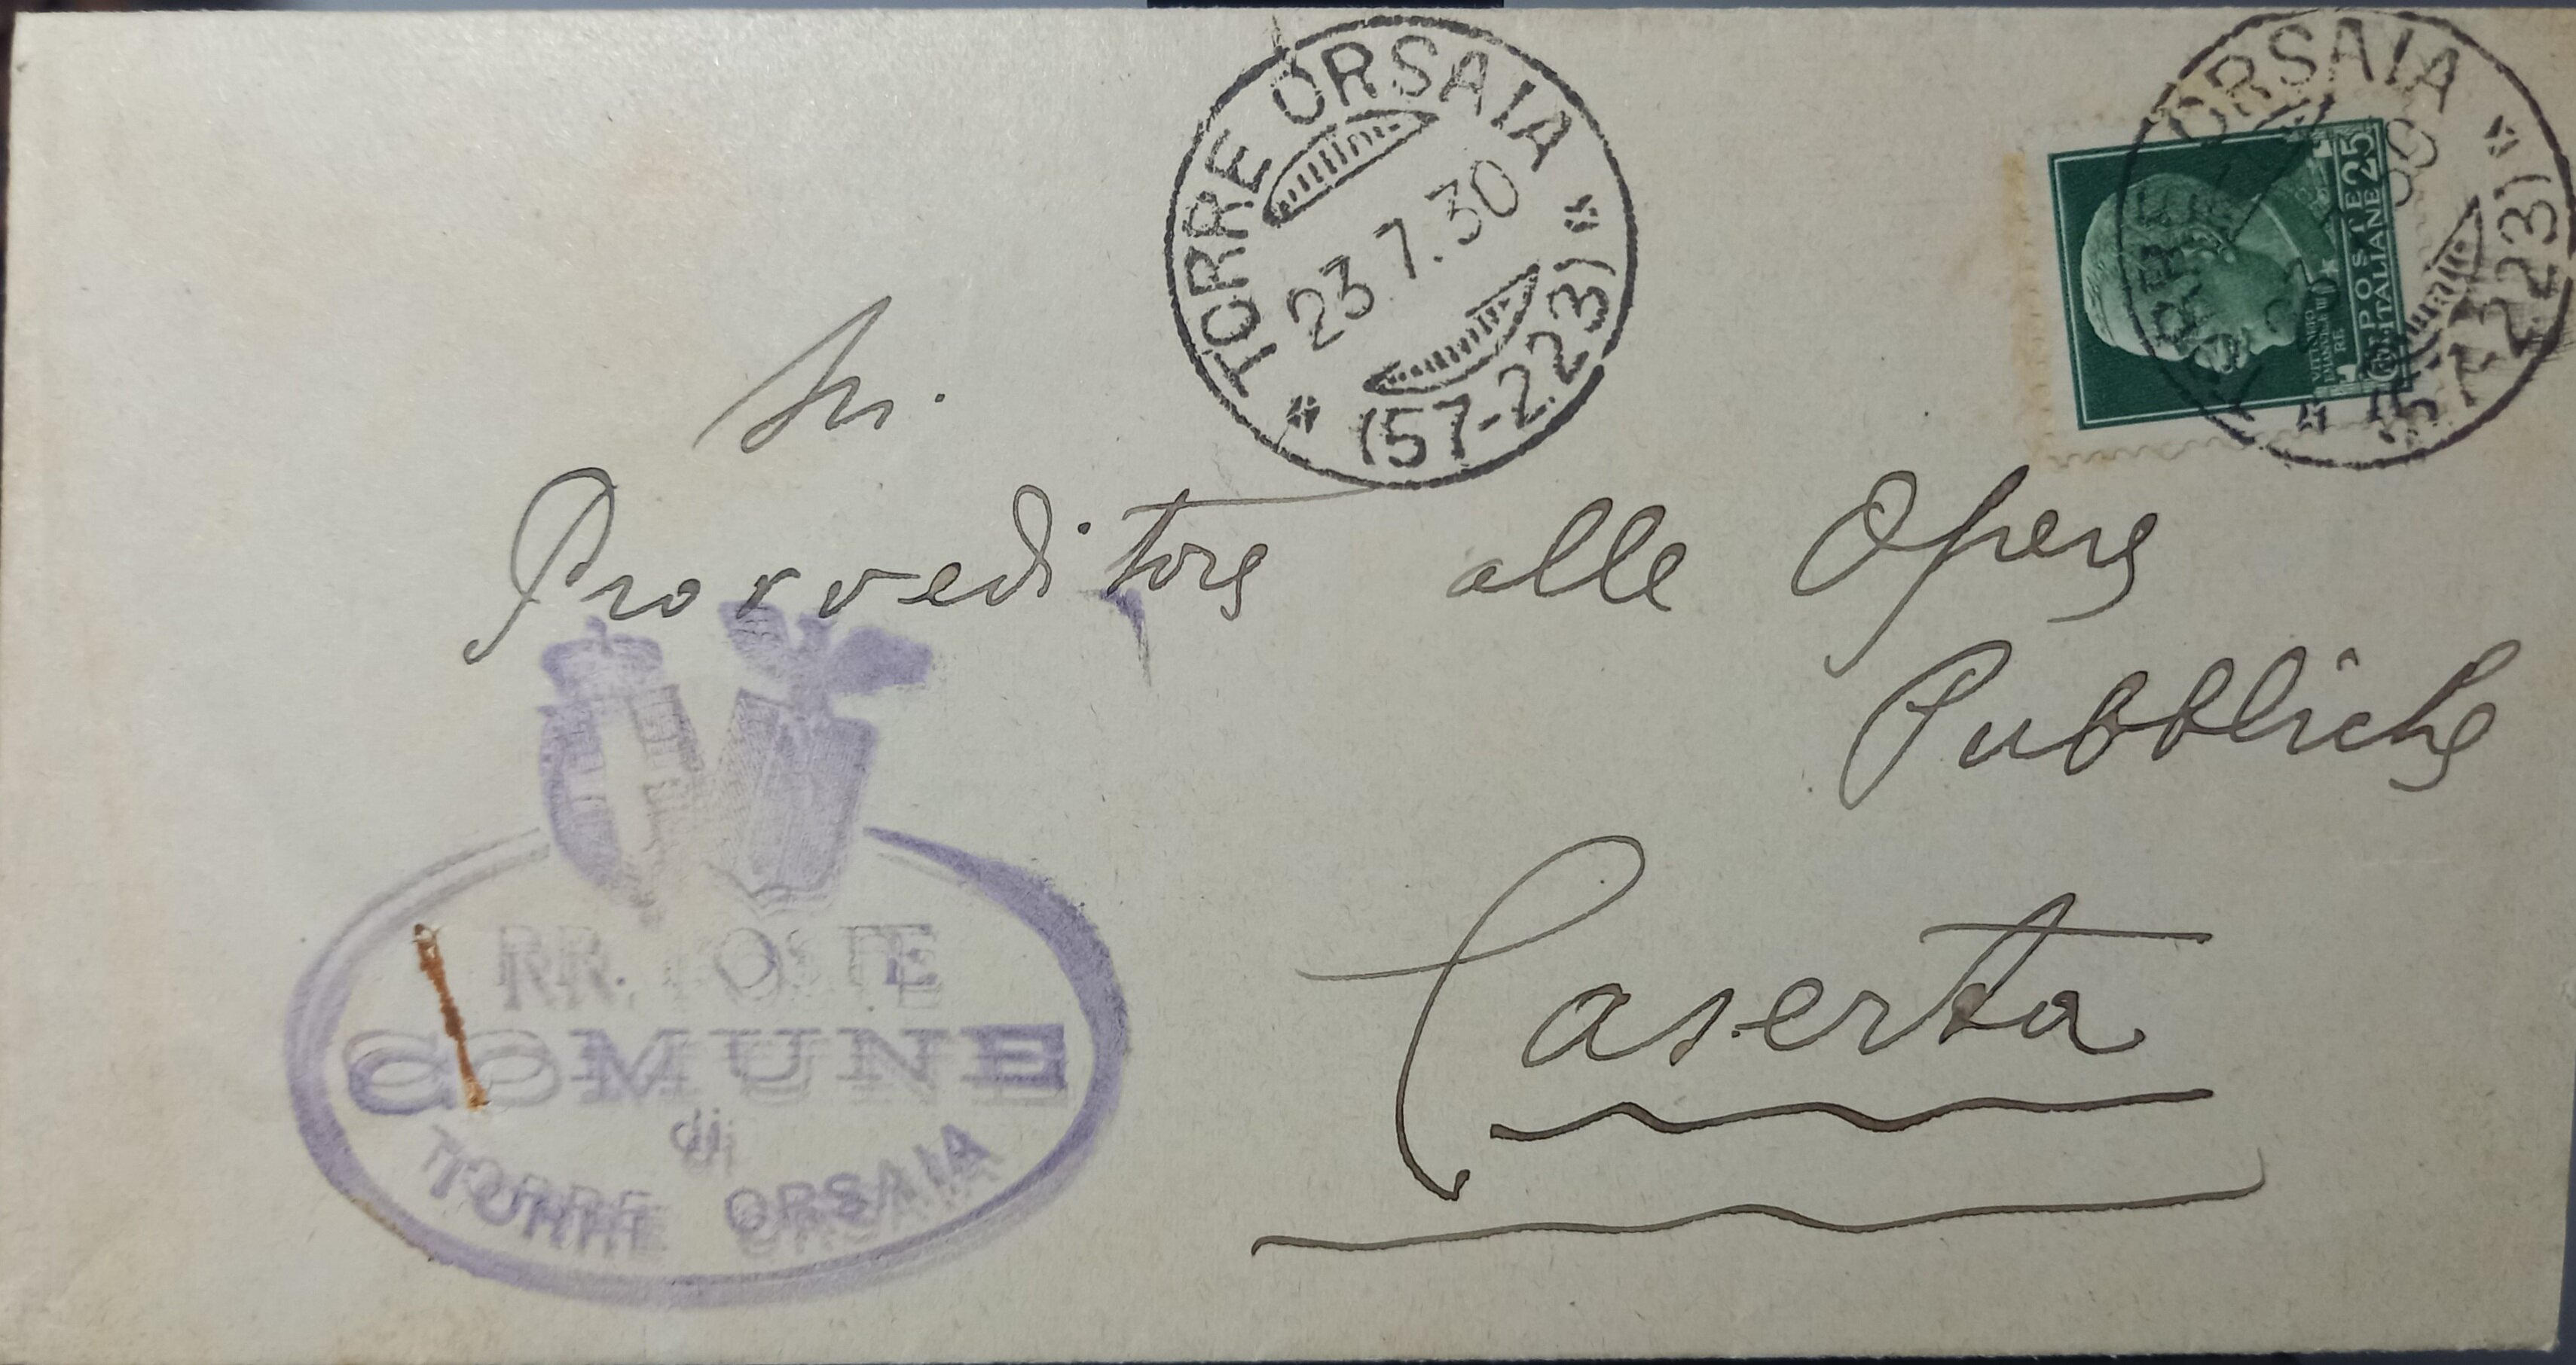 TORRE ORSAIA
23.7.30
(57-223)
ORSAIA
223)
POSTE
ITALIANE
25
RE
Sr.
Provveditore alle Opere
Pubbliche
Caserta
RR. POSTE
COMUNE
di
TORRE ORSAIA